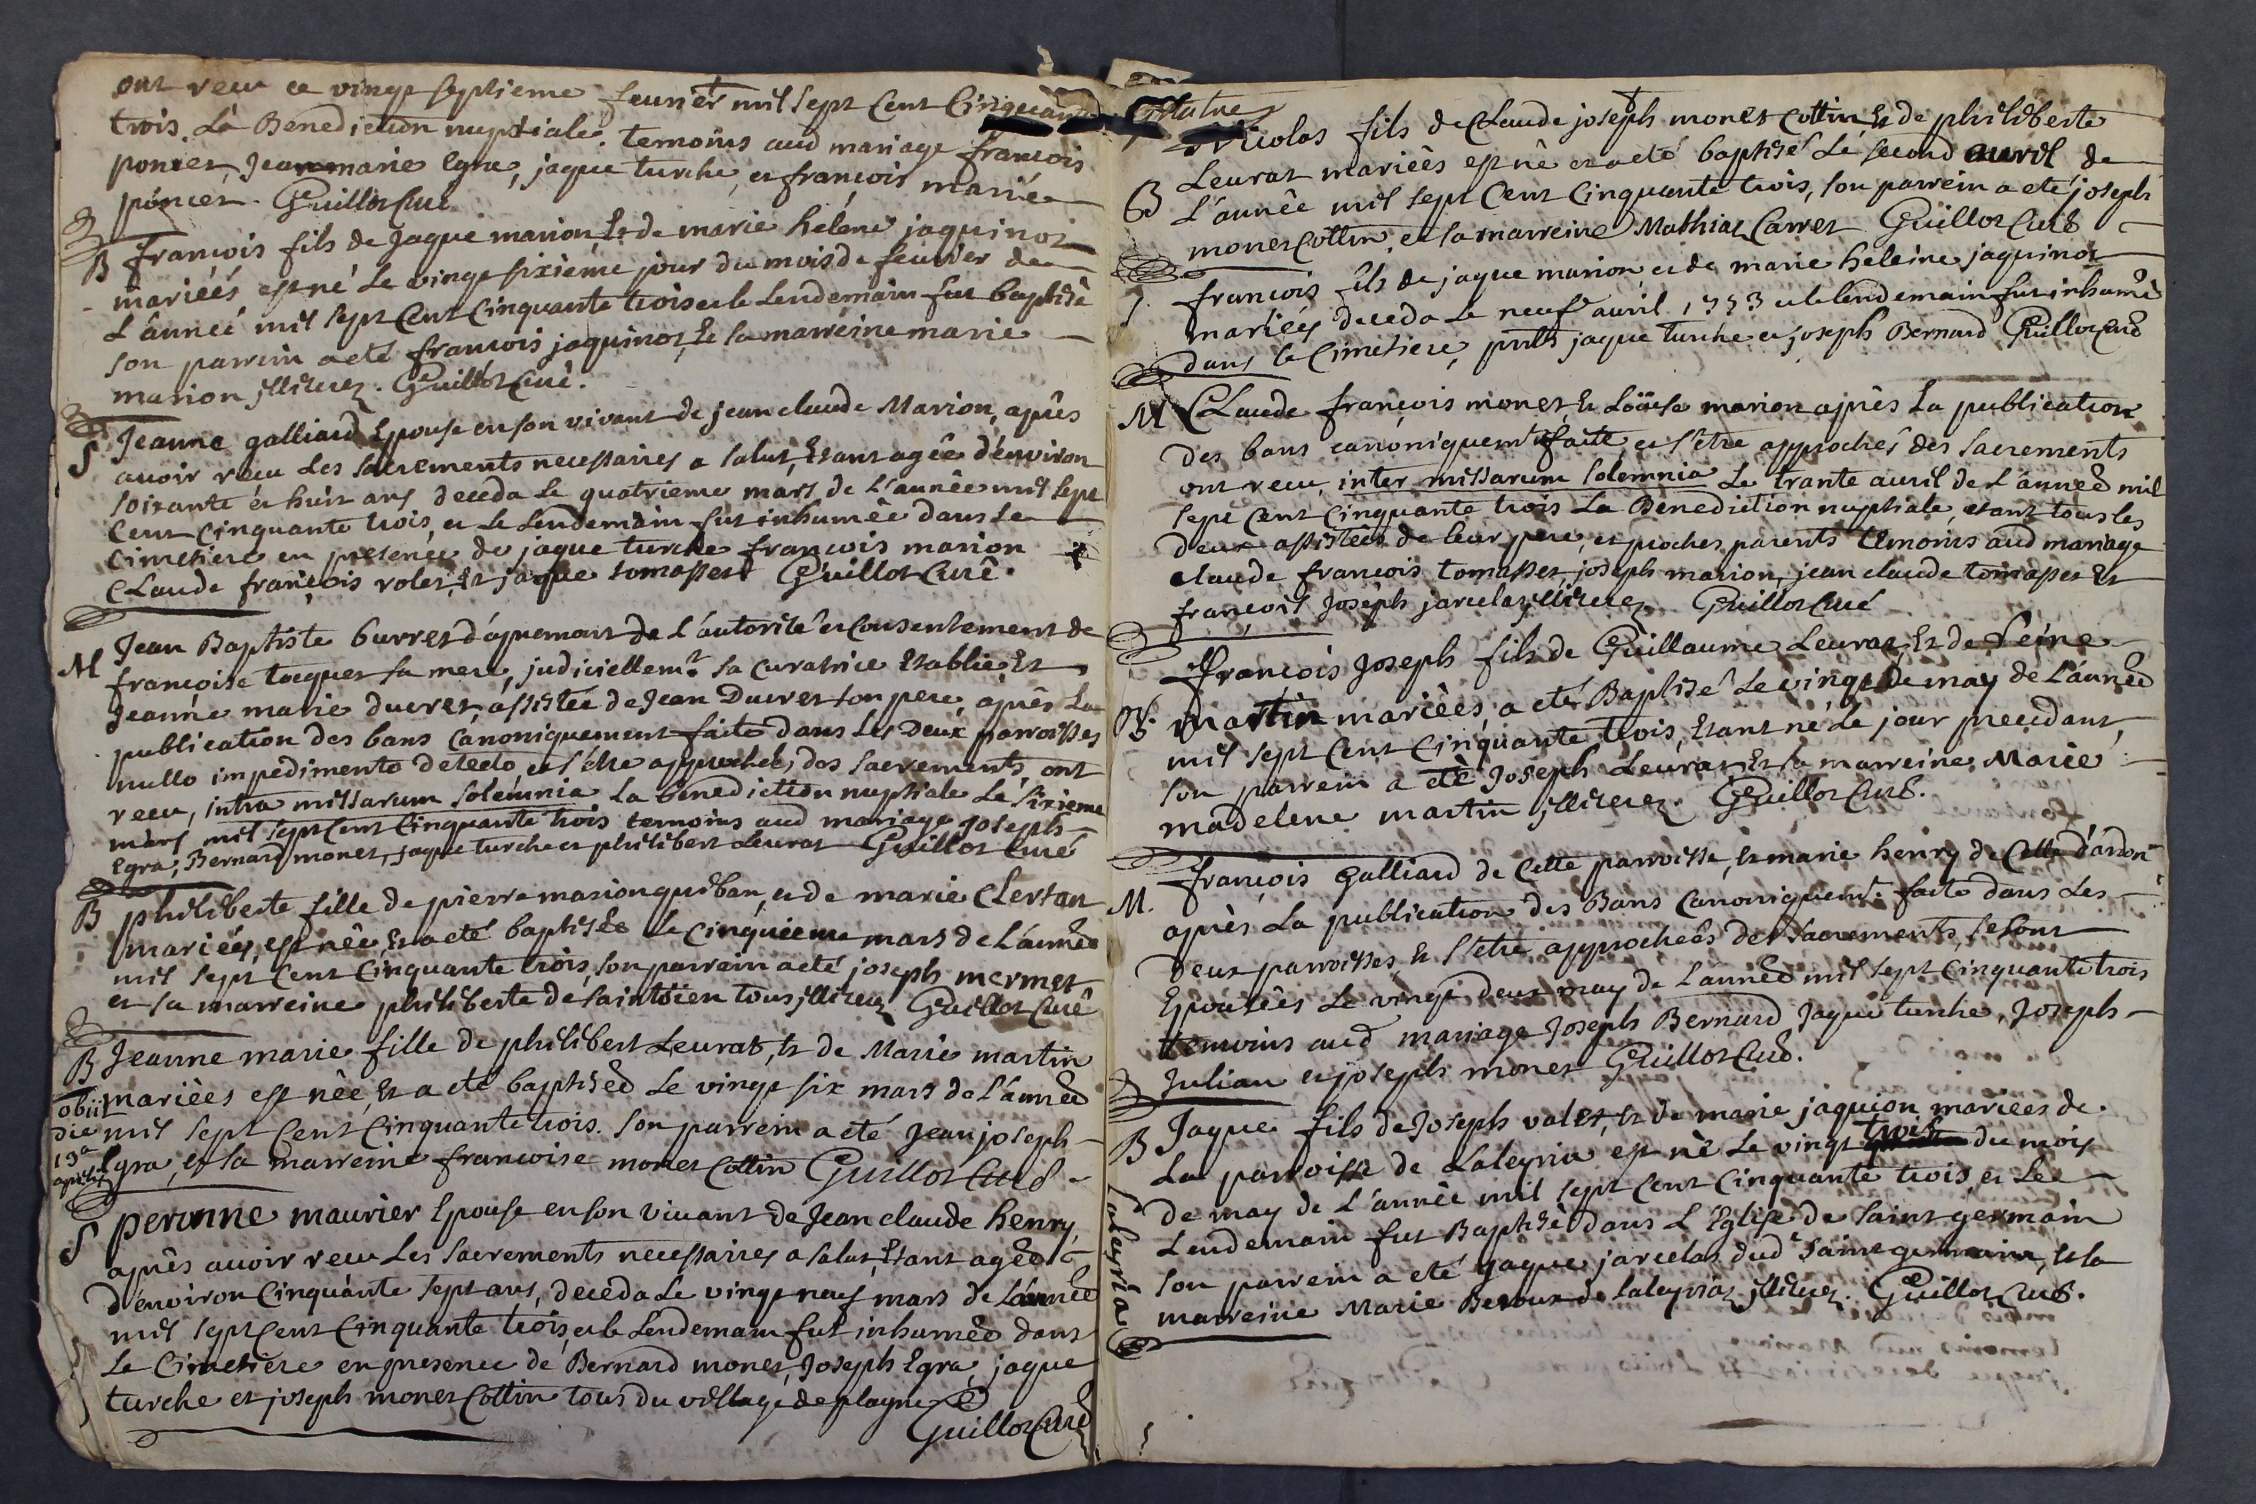 ont recu ce vingt septieme feurier mil sept Cent Cinquante
trois La Benediction nuptiale. temoins aud mariage francois
poncet, Jean marie Egra, jaque turche, et francois marie
poncet. Guillot Curé
B francois fils de Jaque marion, Et de marie helene jaquinot
mariéés est né Le vingt sixieme jour du mois de feurier de
L'année mil sept Cent Cinquante trois et le Lendemain fut baptisé
son parrein a eté francois jaquinot, Et sa marreine marie
marion illiterez. Guillot Curé.
S Jeanne galliard Epouse en son vivant de jean claude Marion, après
auoir recu Les sacrements necessaires a salut, Etant agée d'environ
soixante et huit ans deceda Le quatrieme mars de L'année mil sept
Cent Cinquante trois, et Le Lendemain fut inhumée dans Le
Cimetiere en presence de jaque turche francois marion
CLaude françois volet, Et jaque tomasset Guillot Curé.
M Jean Baptiste burret d'aquemont de L'autorité et Consentement de
françoise tocquet sa mere, judiciellemt. sa Curatrice Etablie, Et
Jeanne marie ducret, assistée de Jean Ducret son pere, après La
publication des bans Canoniquement faite dans Les Deux parroisses
nullo impedimento detecto, et s'être approchés des sacrements, ont
recu, intra missarum solemnia La benediction nuptiale Le sixieme
mars mil sept Cent Cinquante trois temoins aud mariage joseph
Egra, Bernard monet, jaque turche et philibert Leurat Guillot Curé
B philiberte fille de pierre marion guéban, et de marie Clertan
mariéés, est née Et a eté baptisée le Cinquieme mars de L'année
mil sept Cent Cinquante trois, son parrein a eté joseph mermet
et sa marreine philiberte de saint oien tous illiterez Guillot Curé
B Jeanne marie fille de philibert Leurat, Et de Marie martin
mariéés est née, Et a eté baptisée Le vingt six mars de L'année
obiit
die
19a
aprilis
mil sept Cent Cinquante trois. son parrein a eté Jean joseph
Egra, et sa marreine francoise monet Cottin Guillot Curé
S peronne maurier Epouse en son vivant de Jean claude henry,
après auoir recu Les sacrements necessaires a salut, Etant agée
d'environ Cinquante sept ans, deceda Le vingt neuf mars de L'année
mil sept Cent Cinquante trois, et le Lendemain fut inhumée dans
Le Cimetiere en presence de Bernard monet, Joseph Egra, jaque
turche et joseph monet Cottin tous du village de plagne
Guillot Curé
Nicolas fils de CLaude joseph monet Cottin, Et de philiberte
B Leurat mariéés est né et a eté baptisé Le second auril de
L'année mil sept Cent Cinquante trois, son parrein a eté joseph
monet Cottin, et sa marreine Mathiaz Carret Guillot Curé
S francois fils de jaque marion et de marie heleine jaquinot
mariéés deceda Le neuf auril 1753 et le lendemain fut inhumé
dans le Cimetiere, pnts jaque turche et joseph Bernard Guillot Curé
M CLaude françois monet Et Loüise marion après La publication
Des bans canoniquemt faite, et s'être approchés des sacrements
ont recu, inter missarum solemnia Le trante auril de L'année mil
sept Cent Cinquante trois La Benediction nuptiale, etant tous les
deux assistéés de leur pere, et proches parents temoins aud mariage
claude francois tomasset, joseph marion, jean claude tomasset Et
françois Joseph jarcelat illiterez Guillot Curé
francois Joseph fils de Guillaume Leurat, Et de Reine
B. martin mariéés, a eté Baptisé Le vingt de may de L'année
mil sept Cent Cinquante trois, Etant né Le jour precedant,
son parrein a eté Joseph Leurat, Et sa marreine Marie
madelene martin illiterez. Guillot Curé.
M. françois Galliard de Cette parroisse, Et marie henry de Celle d'ardon
après La publication des Bans Canoniquemt. faite dans Les
Deux parroisses, Et s'être approchéés des sacrements, se sont
Epousées Le vingt deux may de L'année mil sept Cinquante trois
temoins aud mariage Joseph Bernard Jaque turche, Joseph
Julian et joseph monet Guillot Curé.
B Jaque fils de Joseph valet, Et de marie jaquion mariéés de
La parroisse de Laleyria est né Le vingt trois du mois
de may de L'année mil sept Cent Cinquante trois, et Le
Lendemain fut Baptisé dans L'Eglise de saint germain
son parrein a eté jaque jarcelat dud saint germain, et la
marreine Marie Beroux de Laleyria, illiterez. Guillot Curé.
Laleyria